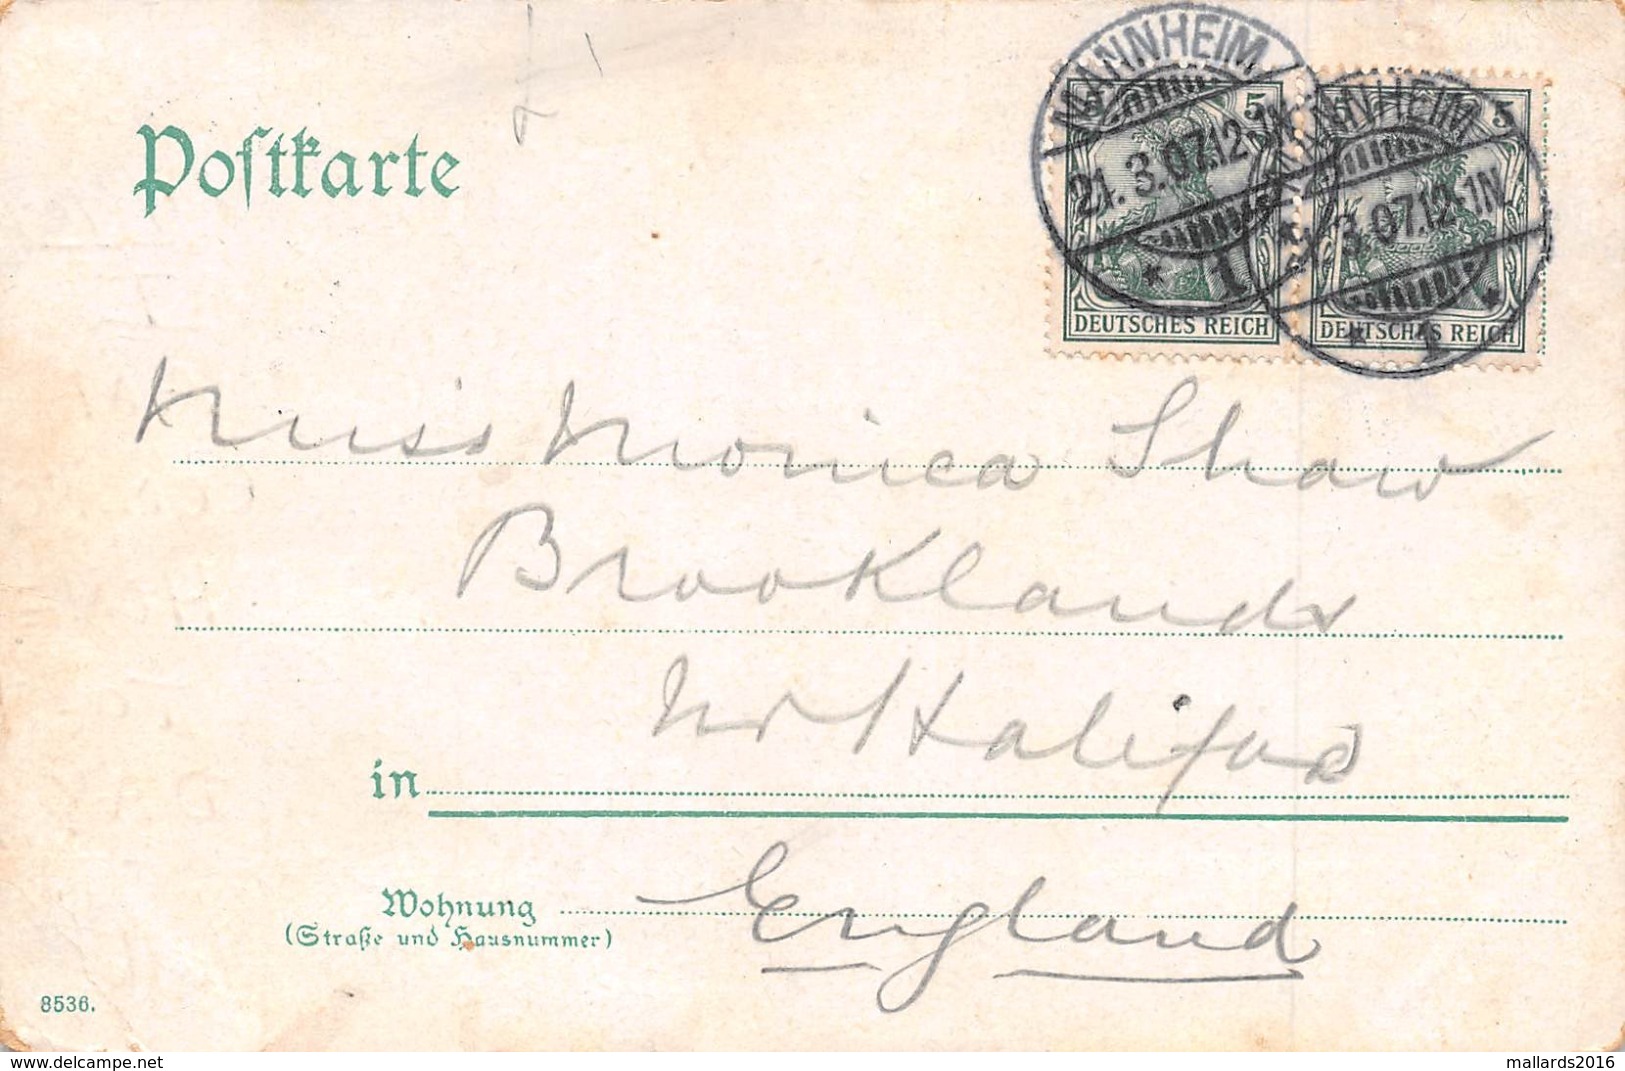 Postkarte
MANNHEIM
21.3.07.12-1N
* 1 *
5
DEUTSCHES REICH
MANNHEIM
3.07.12-1N
* 1 *
5
DEUTSCHES REICH
Miss Monica Shaw
Brooklands
Nr Halifax
in
England
Wohnung
(Straße und Hausnummer)
8536.
delcampe.net
mallards2016